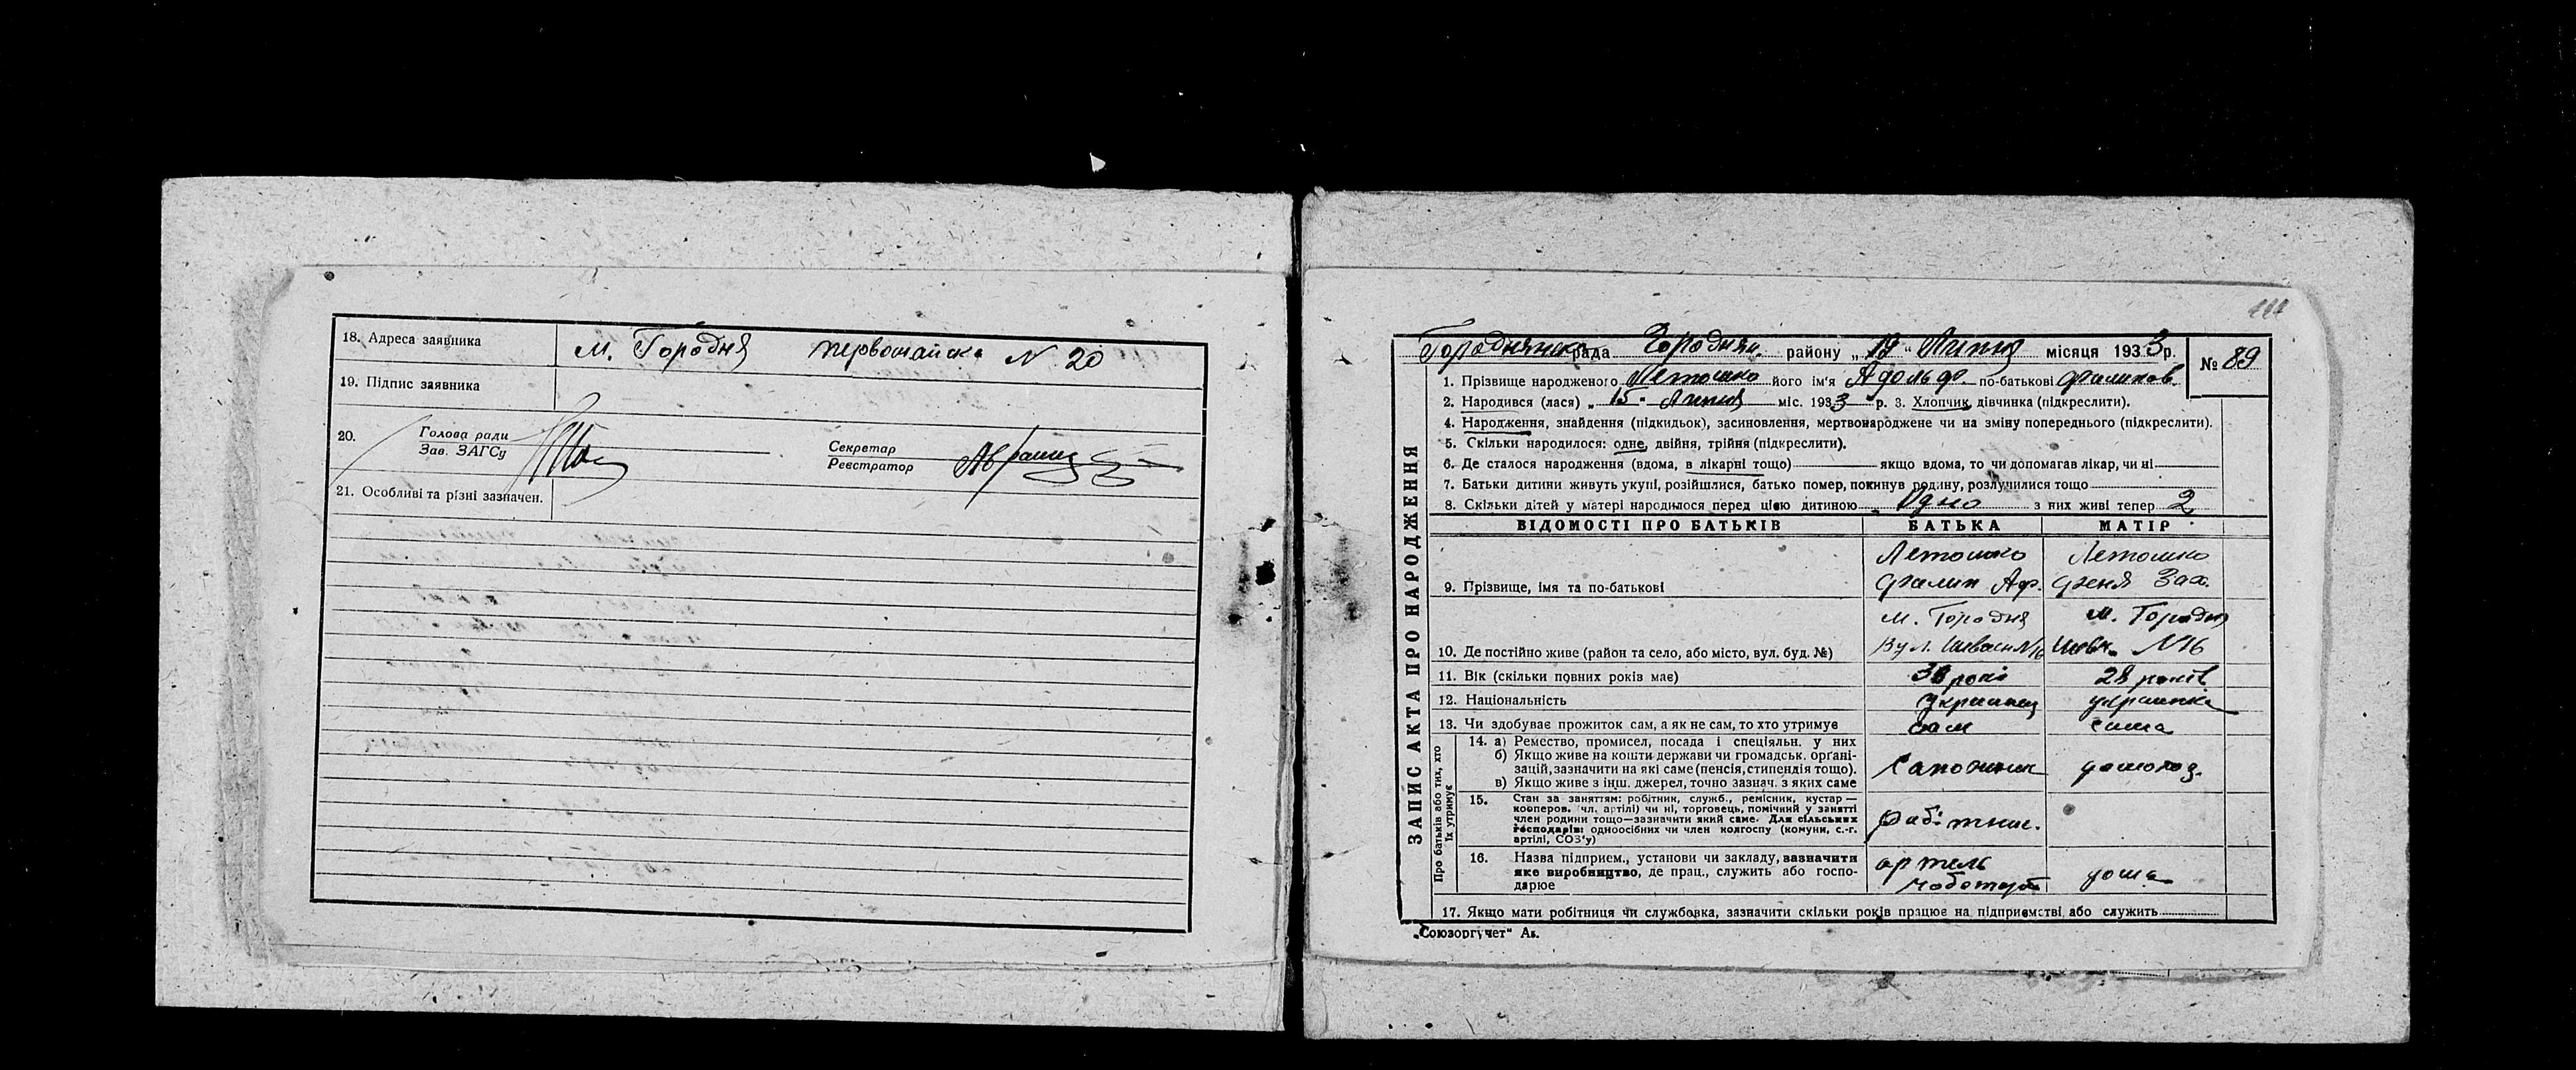 18. Адреса заявника м. Городня первомайска N 20
19. Підпис заявника
20. Голова ради
Зав. ЗАГСу
Секретар
Реєстратор
21. Особливі та різні зазначен.
Городнянска рада Городнян. району „ “ Липня місяця 1933 р.
№ 89
1. Прізвище народженого Летошко його ім'я Адольф по-батькові Филипов.
2. Народився (лася) „ 15 " Липня міс. 1933 р. 3. Хлопчик, дівчинка (підкреслити).
4. Народження, знайдення (підкидьок), засиновлення, мертвонароджене чи на зміну попереднього (підкреслити).
5. Скільки народилося: одне, двійня, трійня (підкреслити).
6. Де сталося народження (вдома, в лікарні тощо) якщо вдома, то чи допомагав лікар, чи ні
7. Батьки дитини живуть укупі, розійшлися, батько помер, покинув родину, розлучилися тощо
8. Скільки дітей у матері народилося перед цією дитиною Одно з них живі тепер 2
ЗАПИС АКТА ПРО НАРОДЖЕННЯ
ВІДОМОСТІ ПРО БАТЬКІВ БАТЬКА МАТІР
Летошко Летошко
9. Прізвище, імя та по-батькові Филип Аф. Феня Зах.
м. Городня м. Городня
10. Де постійно живе (район та село, або місто, вул. буд. №) Вул. N16 N16
11. Вік (скільки повних років має) років 28 років
12. Національність Украинец украинка
13. Чи здобуває прожиток сам, а як не сам, то хто утримує сам сама
Про батьків або тих, хто їх утримує
14. а) Ремество, промисел, посада і спеціяльн. у них
б) Якщо живе на кошти держави чи громадськ. органі-
зацій, зазначити на які саме (пенсія, стипендія тощо). Сапожник домогод.
в) Якщо живе з інш. джерел, точно зазнач. з яких саме
15. Стан за заняттям: робітник, служб., ремісник, кустар —
кооперов. (чл. артілі) чи ні, торговець, помічний у занятті
член родини тощо—зазначити який саме. Для сільських
господарів: одноосібних чи член колгоспу (комуни, с.-г.
артілі, СОЗ'у) робітник.
16. Назва підприєм., установи чи закладу, зазначити
яке виробництво, де прац., служить або госпо-
дарює артель дома
17. Якщо мати робітниця чи службовка, зазначити скільки років працює на підприємстві або служить
„Союзоргучет“